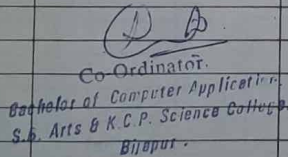 Co-Ordinator.
Bachelor of Computer Application
S.B. Arts & K.C.P. Science College.
Bijapur.